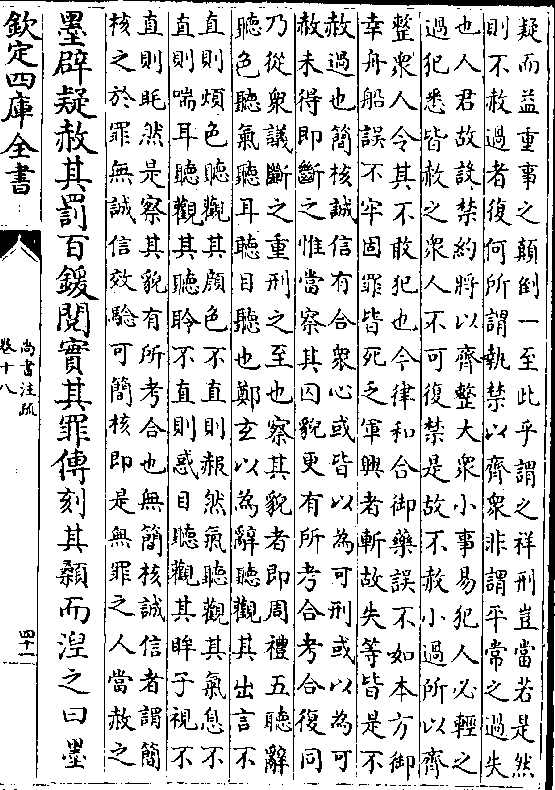 疑而益重事之顛倒一至此乎謂之祥刑豈當若是然
則不赦過者復何所謂執禁以齊衆非謂平常之過失
也人君故設禁約將以齊整大衆小事易犯人必輕之
過犯悉皆赦之衆人不可復禁是故不赦小過所以齊
整衆人令其不敢犯也今律和合御藥誤不如本方御
幸舟船誤不牢固罪皆死乏軍興者斬故失等皆是不
赦過也簡核誠信有合衆心或皆以為可刑或以為可
赦未得即斷之惟當察其囚貌更有所考合考合復同
乃從衆議斷之重刑之至也察其貌者即周禮五聽辭
聽色聽氣聽耳聽目聽也鄭玄以為辭聽觀其出言不
直則煩色聽觀其顔色不直則赧然氣聽觀其氣息不
直則喘耳聽觀其聽聆不直則惑目聽觀其眸子視不
直則眊然是察其貌有所考合也無簡核誠信者謂簡
核之於罪無誠信效驗可簡核即是無罪之人當赦之
墨辟疑赦其罰百鍰閱實其罪傳刻其顙而涅之曰墨
欽定四庫全書
尚書注疏
卷十八
四十一